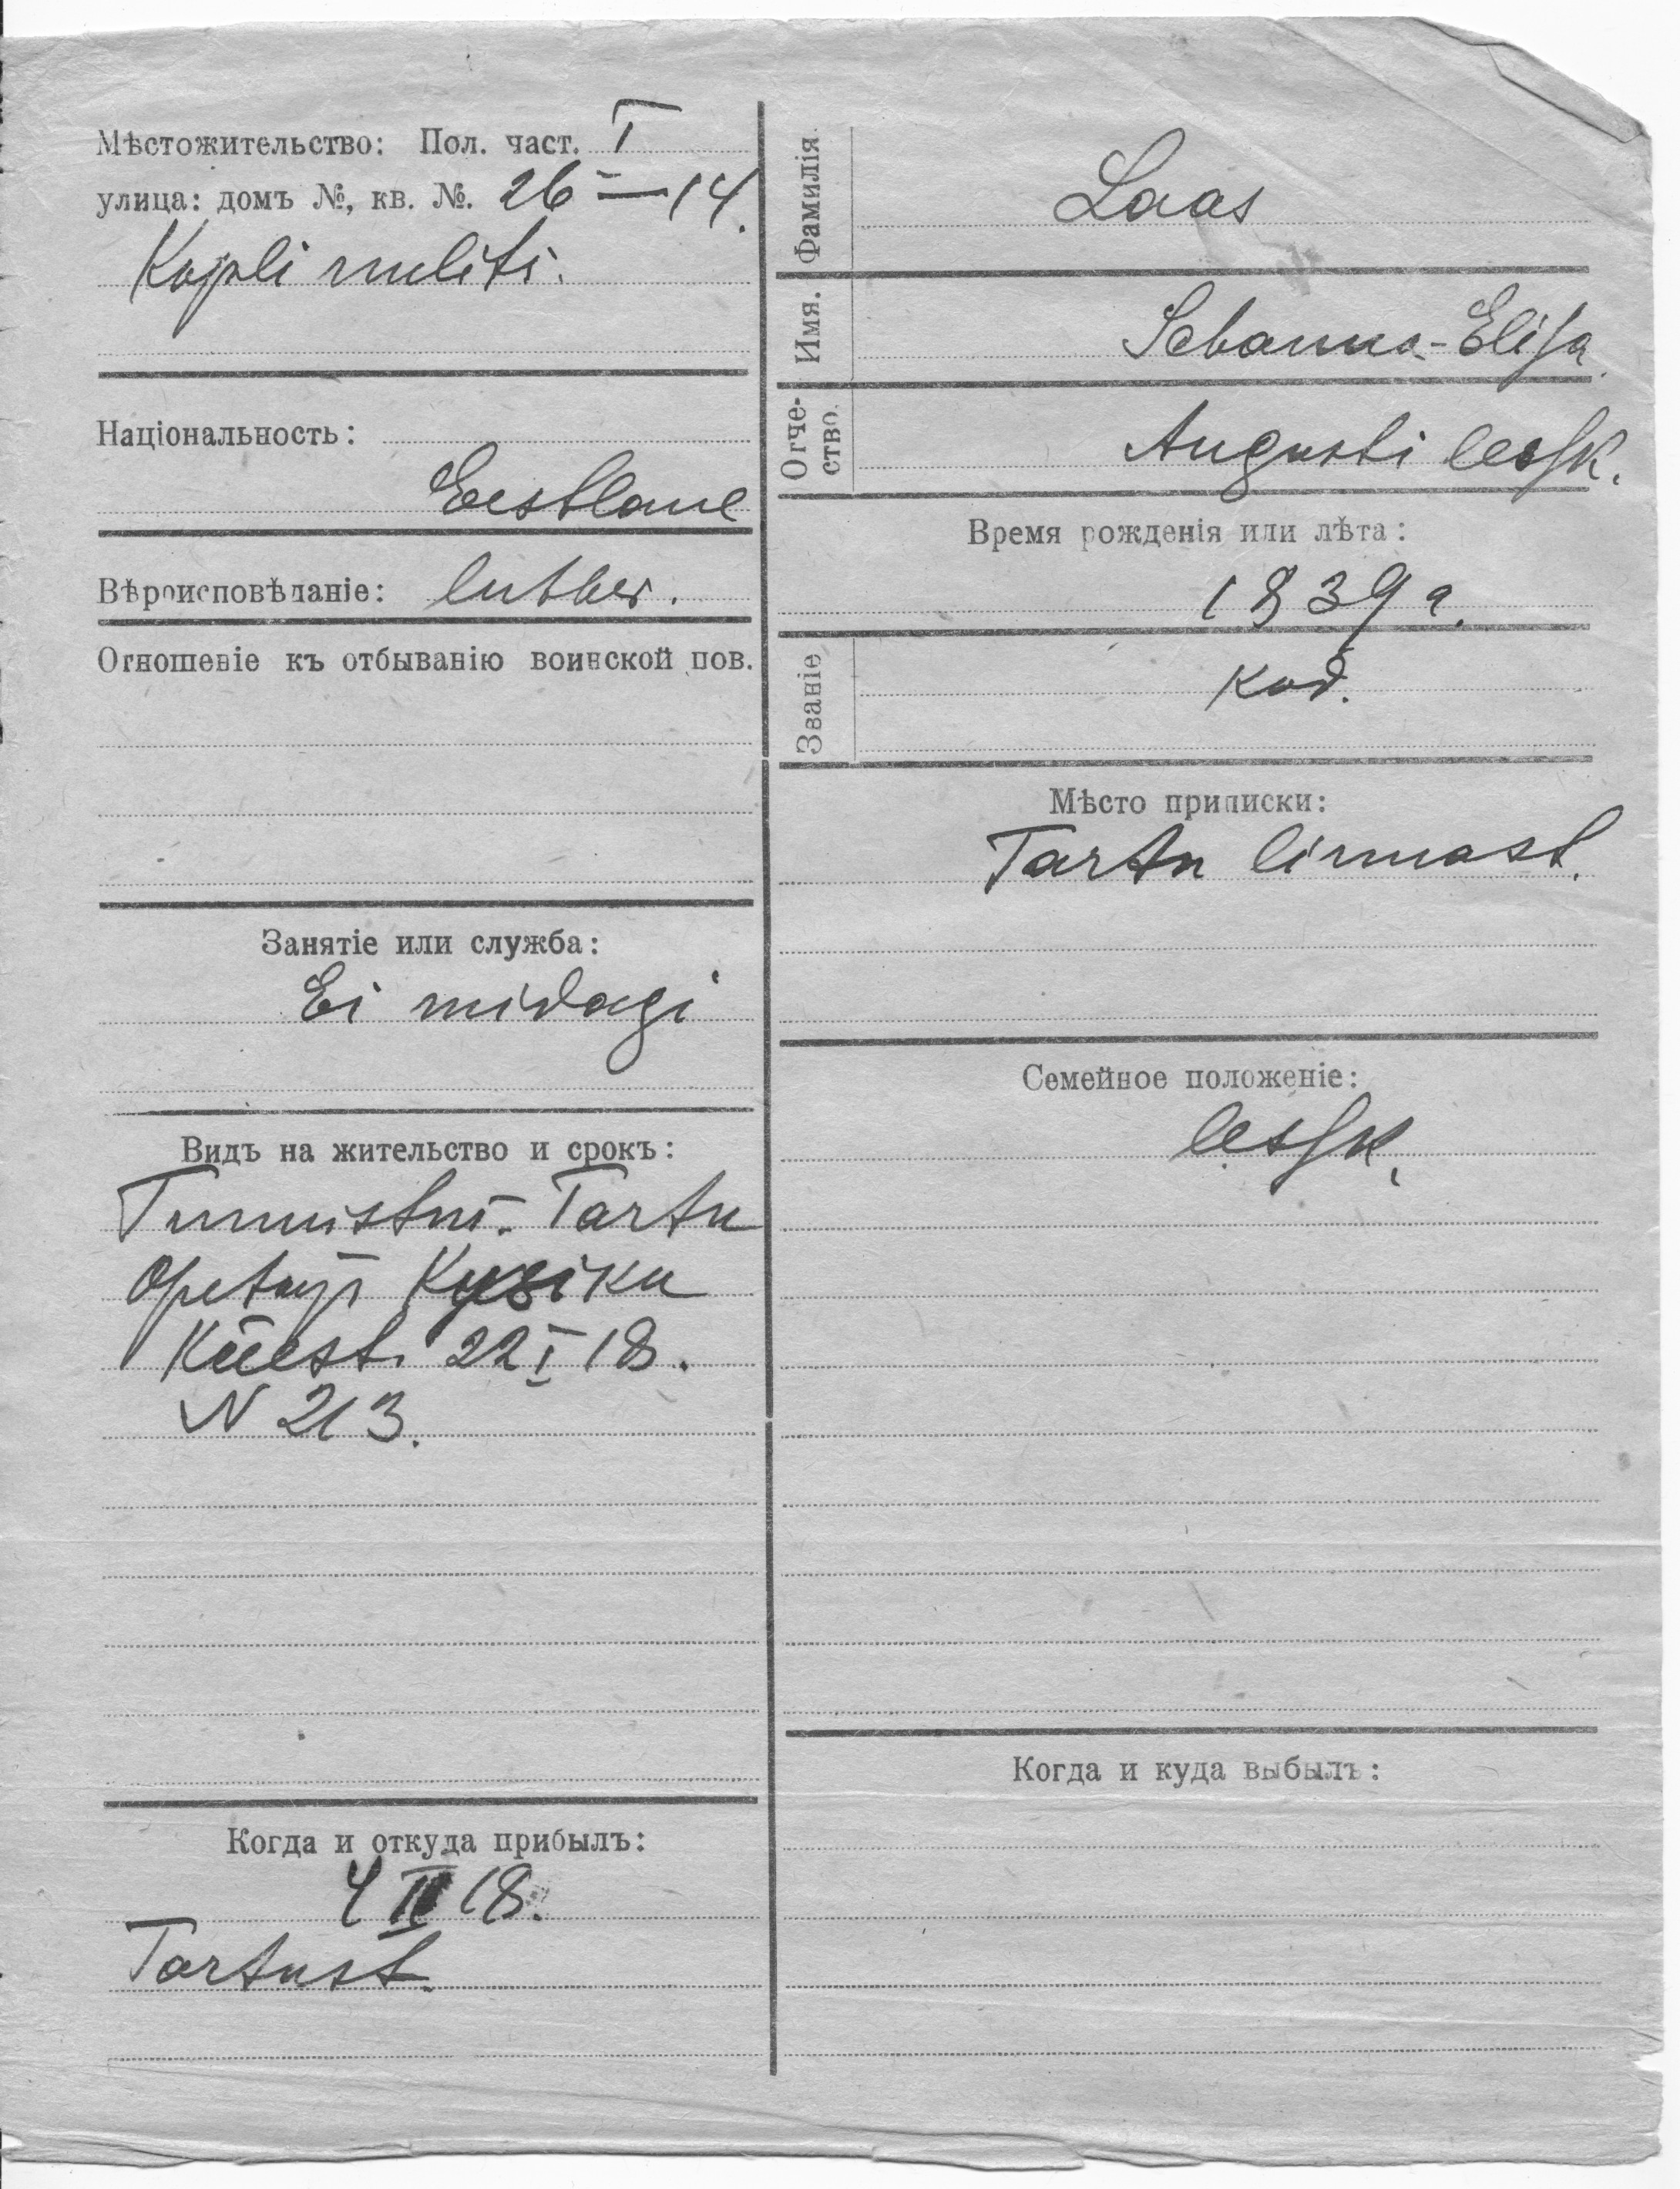 Мѣстожительство: Пол. част. I
улица: домъ №, кв. №. 26 — 14.
Kopli
Національность:
Eestlane
Вѣроисповѣданіе: luther.
Отношеніе къ отбыванію воинской пов.
Занятіе или служба:
Ei midagi
Видъ на жительство и срокъ:
Tunnistus. Tartu
Opetaja
Käest 22 I 18.
N 213.
Когда и откуда прибылъ:
4 II 18.
Tartust.
Фамилія.
Laas
Имя.
-Elisa
Отче-
ство.
Augusti lesk.
Время рожденія или лѣта:
1839 a.
Званіе
kod.
Мѣсто приписки:
Tartu linnast.
Семейное положеніе:
lesk.
Когда и куда выбылъ: